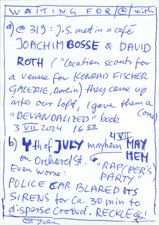 WAITING FOR/@/with
a) @ 313: J.S. met in a café
JOACHIM BOSSE & DAVID
ROTH ("Location scouts for
a venue for KONRAD FISCHER
GALERIE, Berlin) they came up
into our loft, I gave them a
"DEVANDALIZED" book (one)
3 VII 2024 16 52
4 VII
b) 4th of JULY mayhem MAY
on Orchard St. HEM
Even worse: "RAP/PER'S
PARTY"
POLICE CAR BLARED ITS
SIRENS for ca. 30 min to
disperse Crowd. RECKLESS!